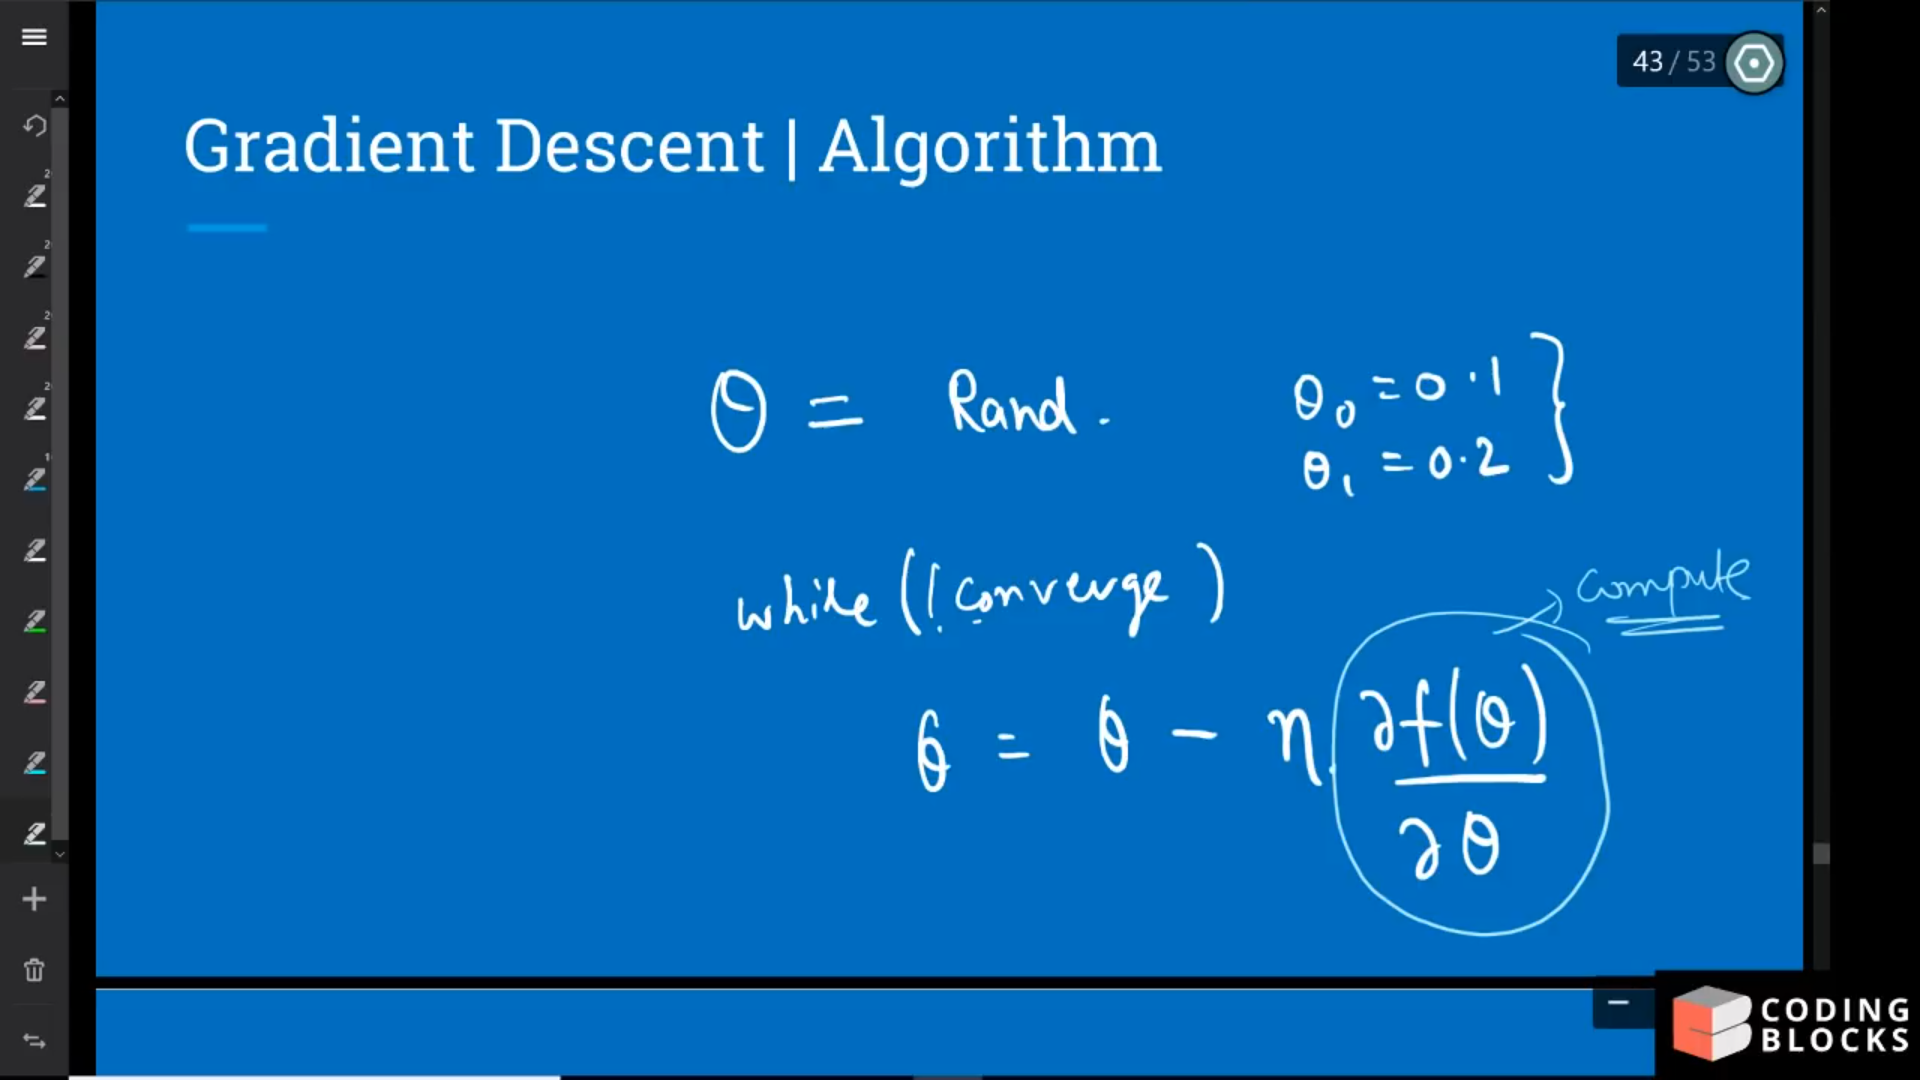 43 / 53
Gradient Descent | Algorithm
θ = Rand.
θ₀ = 0.1
θ₁ = 0.2
while (! converge)
compute
θ = θ - η . ∂f(θ)
∂θ
CODING
BLOCKS